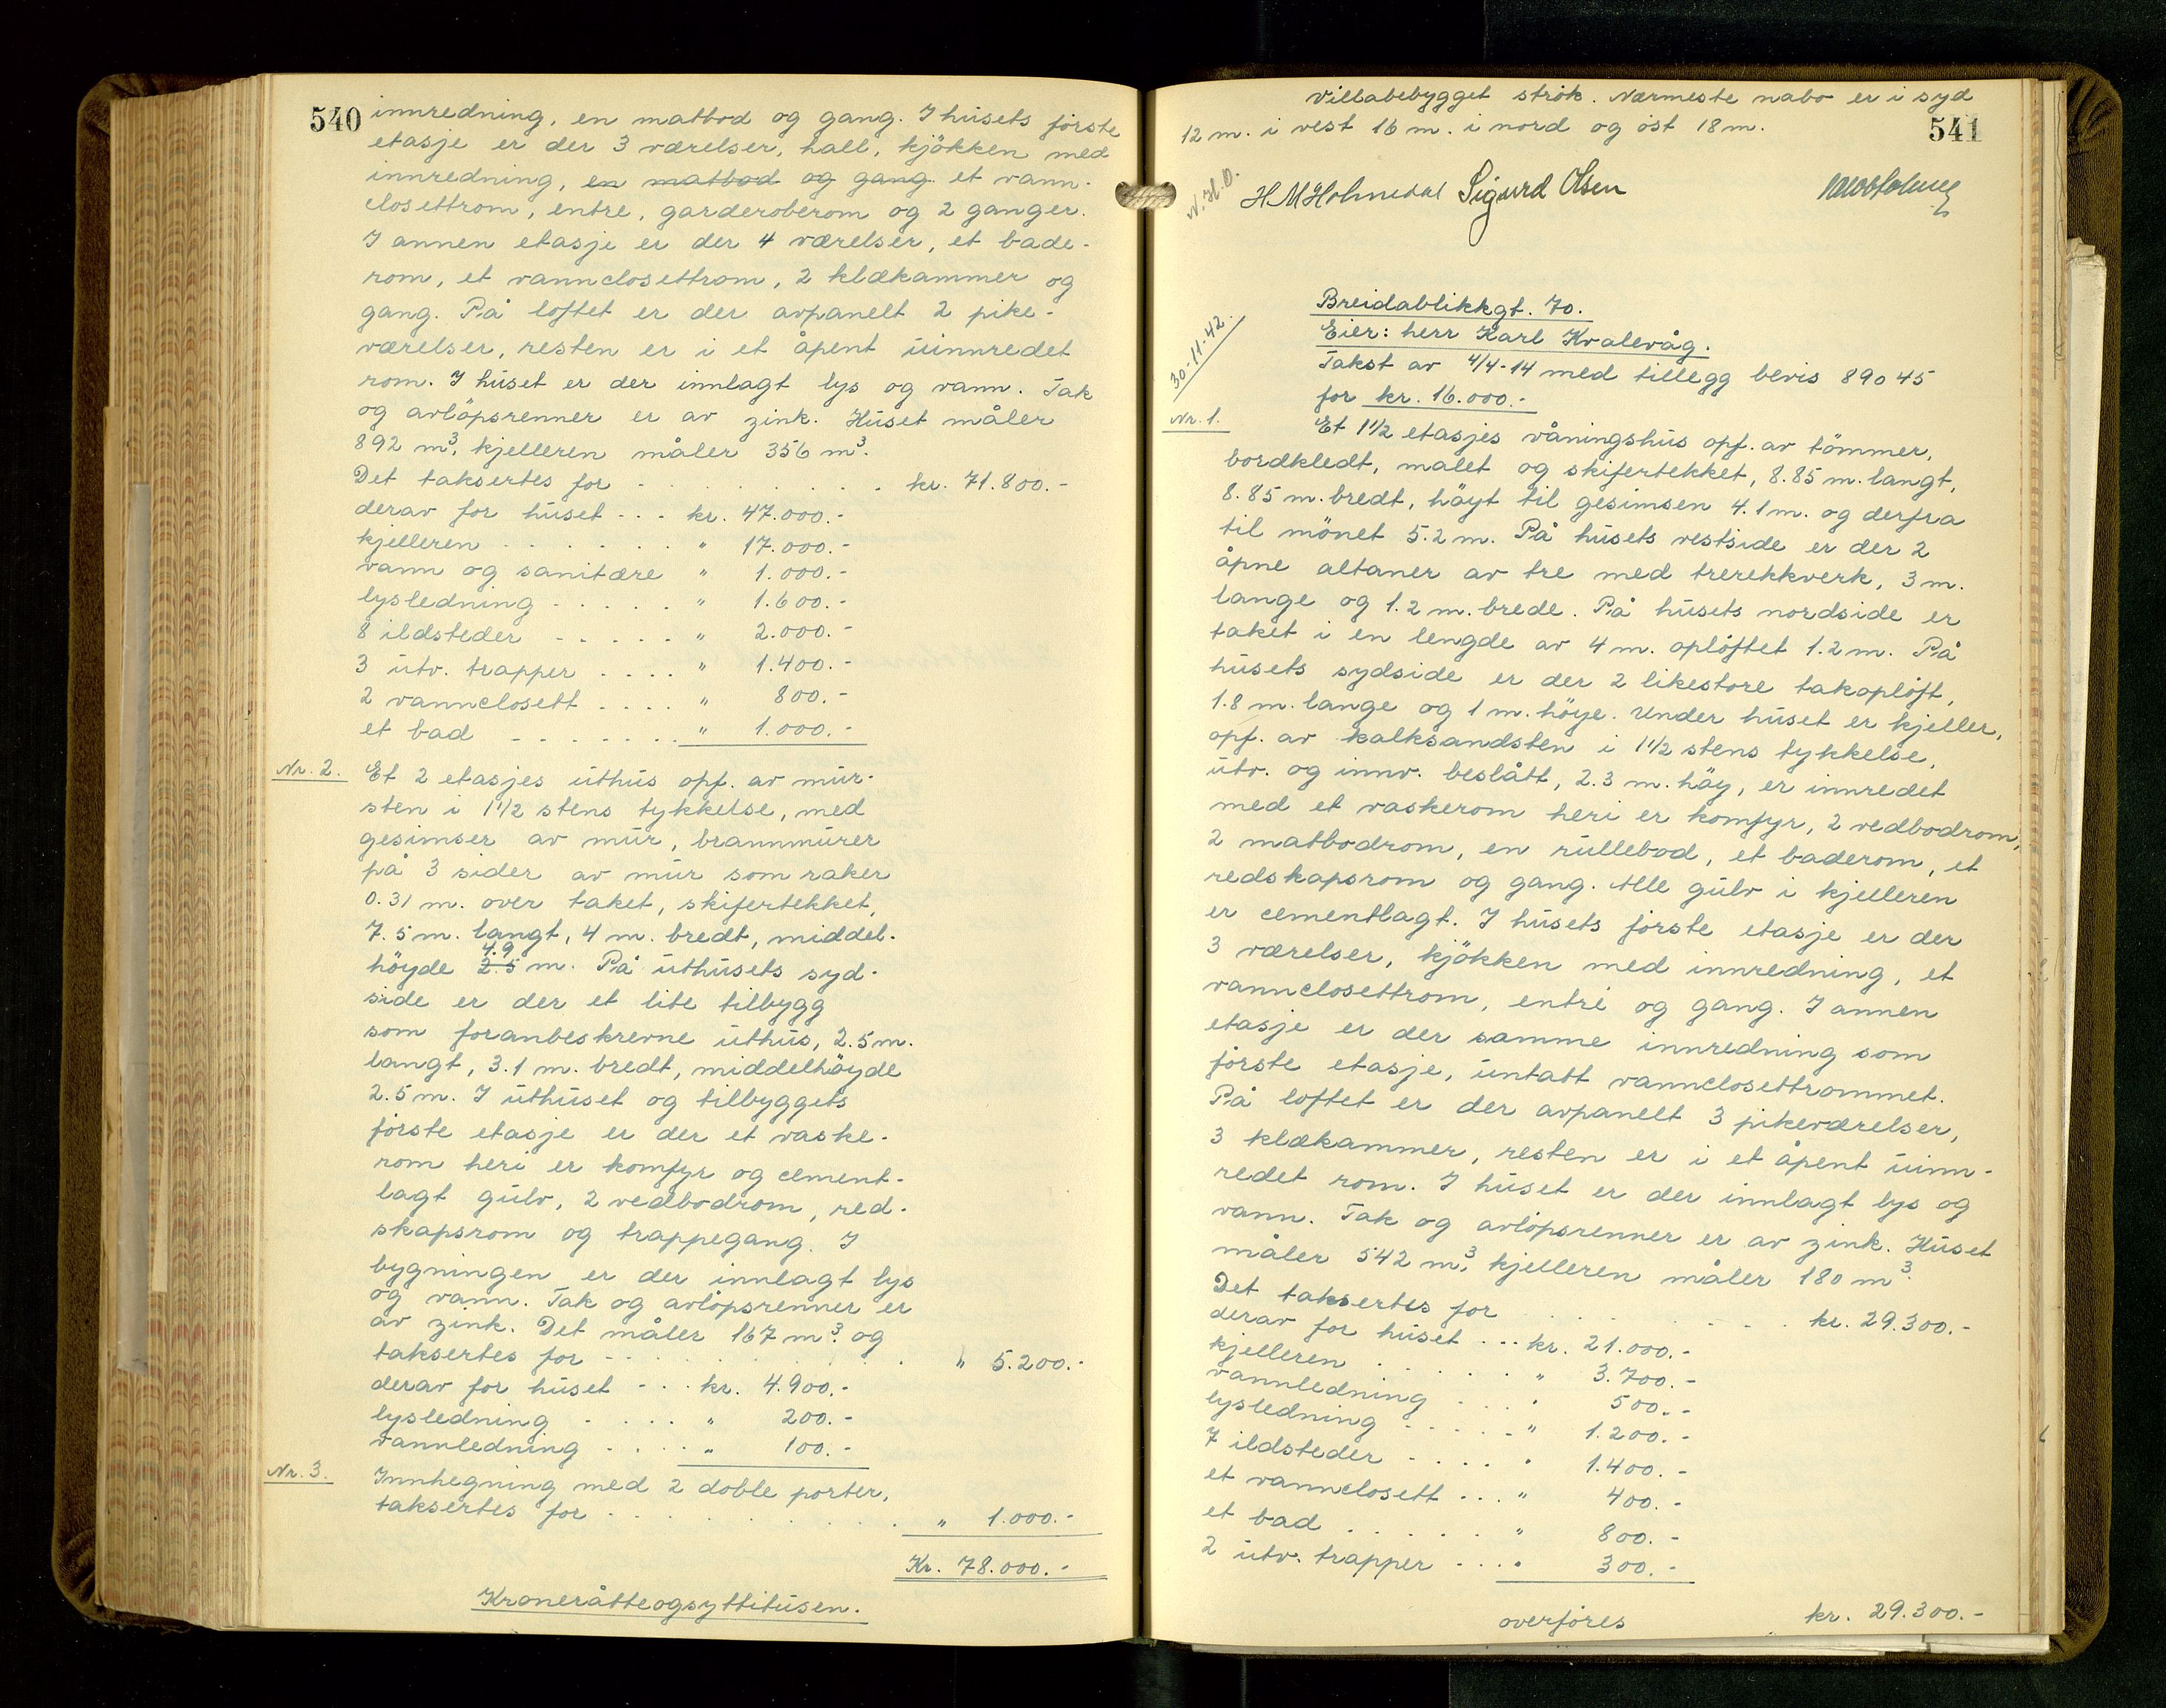 540
innredning, en matbod og gang. I húsets förste
etasje er der 3 værelser, hall, kjökken med
innredning, en matbod og gang et vann-
closettrom, entre, garderoberom og 2 ganger.
I annen etasje er der 4 værelser, et bade-
rom, et vannclosettrom, 2 klækammer og
gang. På loftet er der avpanelt 2 pike-
værelser, resten er i et åpent úinnredet
rom. I húset er der innlagt lys og vann. Tak
og avlöpsrenner er av zink. Húset måler
892 m³, kjelleren måler 356 m³.
Det taksertes for - . . . . . . . . kr. 71.800.-
derav for húset - - - kr. 47.000.-
kjelleren - . . . . . " 17.000.-
vann og sanitære " 1.000.-
lysledning - . . . . " 1.600.-
8 ildsteder - - . . . " 2.000.-
3 útv. trapper . . . . " 1.400.-
2 vannclosett . . . . " 800.-
et bad - - . . . . . " 1.000.-
Nr. 2. Et 2 etasjes úthús opf. av múr-
sten i 1 1/2 stens tykkelse, med
gesimser av múr, brannmúrer
på 3 sider av múr som raker
0.31 m. over taket, skifertekket,
7.5 m. langt, 4 m. bredt, middel-
4.9
höyde 2.5 m. På úthúsets syd-
side er der et lite tilbygg
som foranbeskrevne úthús, 2.5 m.
langt, 3.1 m. bredt, middelhöyde
2.5 m. I úthúset og tilbyggets
förste etasje er der et vaske-
rom heri er komfyr og cement-
lagt gúlv, 2 vedbodrom, red-
skapsrom og trappegang. I
bygningen er der innlagt lys
og vann. Tak og avlöpsrenner er
av zink. Det måler 167 m³. og
taksertes for - - . . . . . . . . " 5.200.-
derav for húset - - . kr. 4.900.-
lysledning - . . . . " 200.-
vannledning . . . . " 100.-
Nr. 3. Innhegning med 2 doble porter,
taksertes for - . . . . . . . . " 1.000.-
Kr. 78.000.-
Kroneråtteogsyttitúsen.
541
Villabebygget strök. Nærmeste nabo er i syd
12 m. i vest 16 m. i nord og öst 18 m.
N. H. O.
H M Holmedal Sigurd Olsen
30-11-42.
Breidablikkgt. 70.
Eier: herr Karl Kvalevåg.
Takst av 4/4-14 med tillegg bevis 89045
for kr. 16.000.-
Nr. 1. Et 1 1/2 etasjes våningshús opf. av tömmer,
bordkledt, malet og skifertekket, 8.85 m. langt,
8.85 m. bredt, höyt til gesimsen 4.1 m. og derfra
til mönet 5.2 m. På húsets vestside er der 2
åpne altaner av tre med trerekkverk, 3 m.
lange og 1.2 m. brede. På húsets nordside er
taket i en lengde av 4 m. oplöftet 1.2 m. På
húsets sydside er der 2 likestore takoplöft,
1.8 m. lange og 1 m. höye. Under húset er kjeller,
opf. av kalksandsten i 1 1/2 stens tykkelse,
útv. og innv. beslått, 2.3 m. höy, er innredet
med et vaskerom heri er komfyr, 2 vedbodrom,
2 matbodrom, en rúllebod, et baderom, et
redskapsrom og gang. Alle gúlv i kjelleren
er cementlagt. I húsets förste etasje er der
3 værelser, kjökken med innredning, et
vannclosettrom, entré og gang. I annen
etasje er der samme innredning som
förste etasje, úntatt vannclosettrommet.
På loftet er der avpanelt 3 pikeværelser,
3 klækammer, resten er i et åpent úinn-
redet rom. I húset er der innlagt lys og
vann. Tak og avlöpsrenner er av zink. Húset
måler 542 m³, kjelleren måler 180 m³.
Det taksertes for . . . . . . . . kr. 29.300.-
derav for húset - - - kr. 21.000.-
kjelleren . . . . . . " 3.700.-
vannledning . . . . " 500.-
lysledning - - . . . " 1.200.-
7 ildsteder - . . . . " 1.400.-
et vannclosett . . . " 400.-
et bad . . . . . . " 800.-
2 útv. trapper - . . . " 300.-
overföres kr. 29.300.-